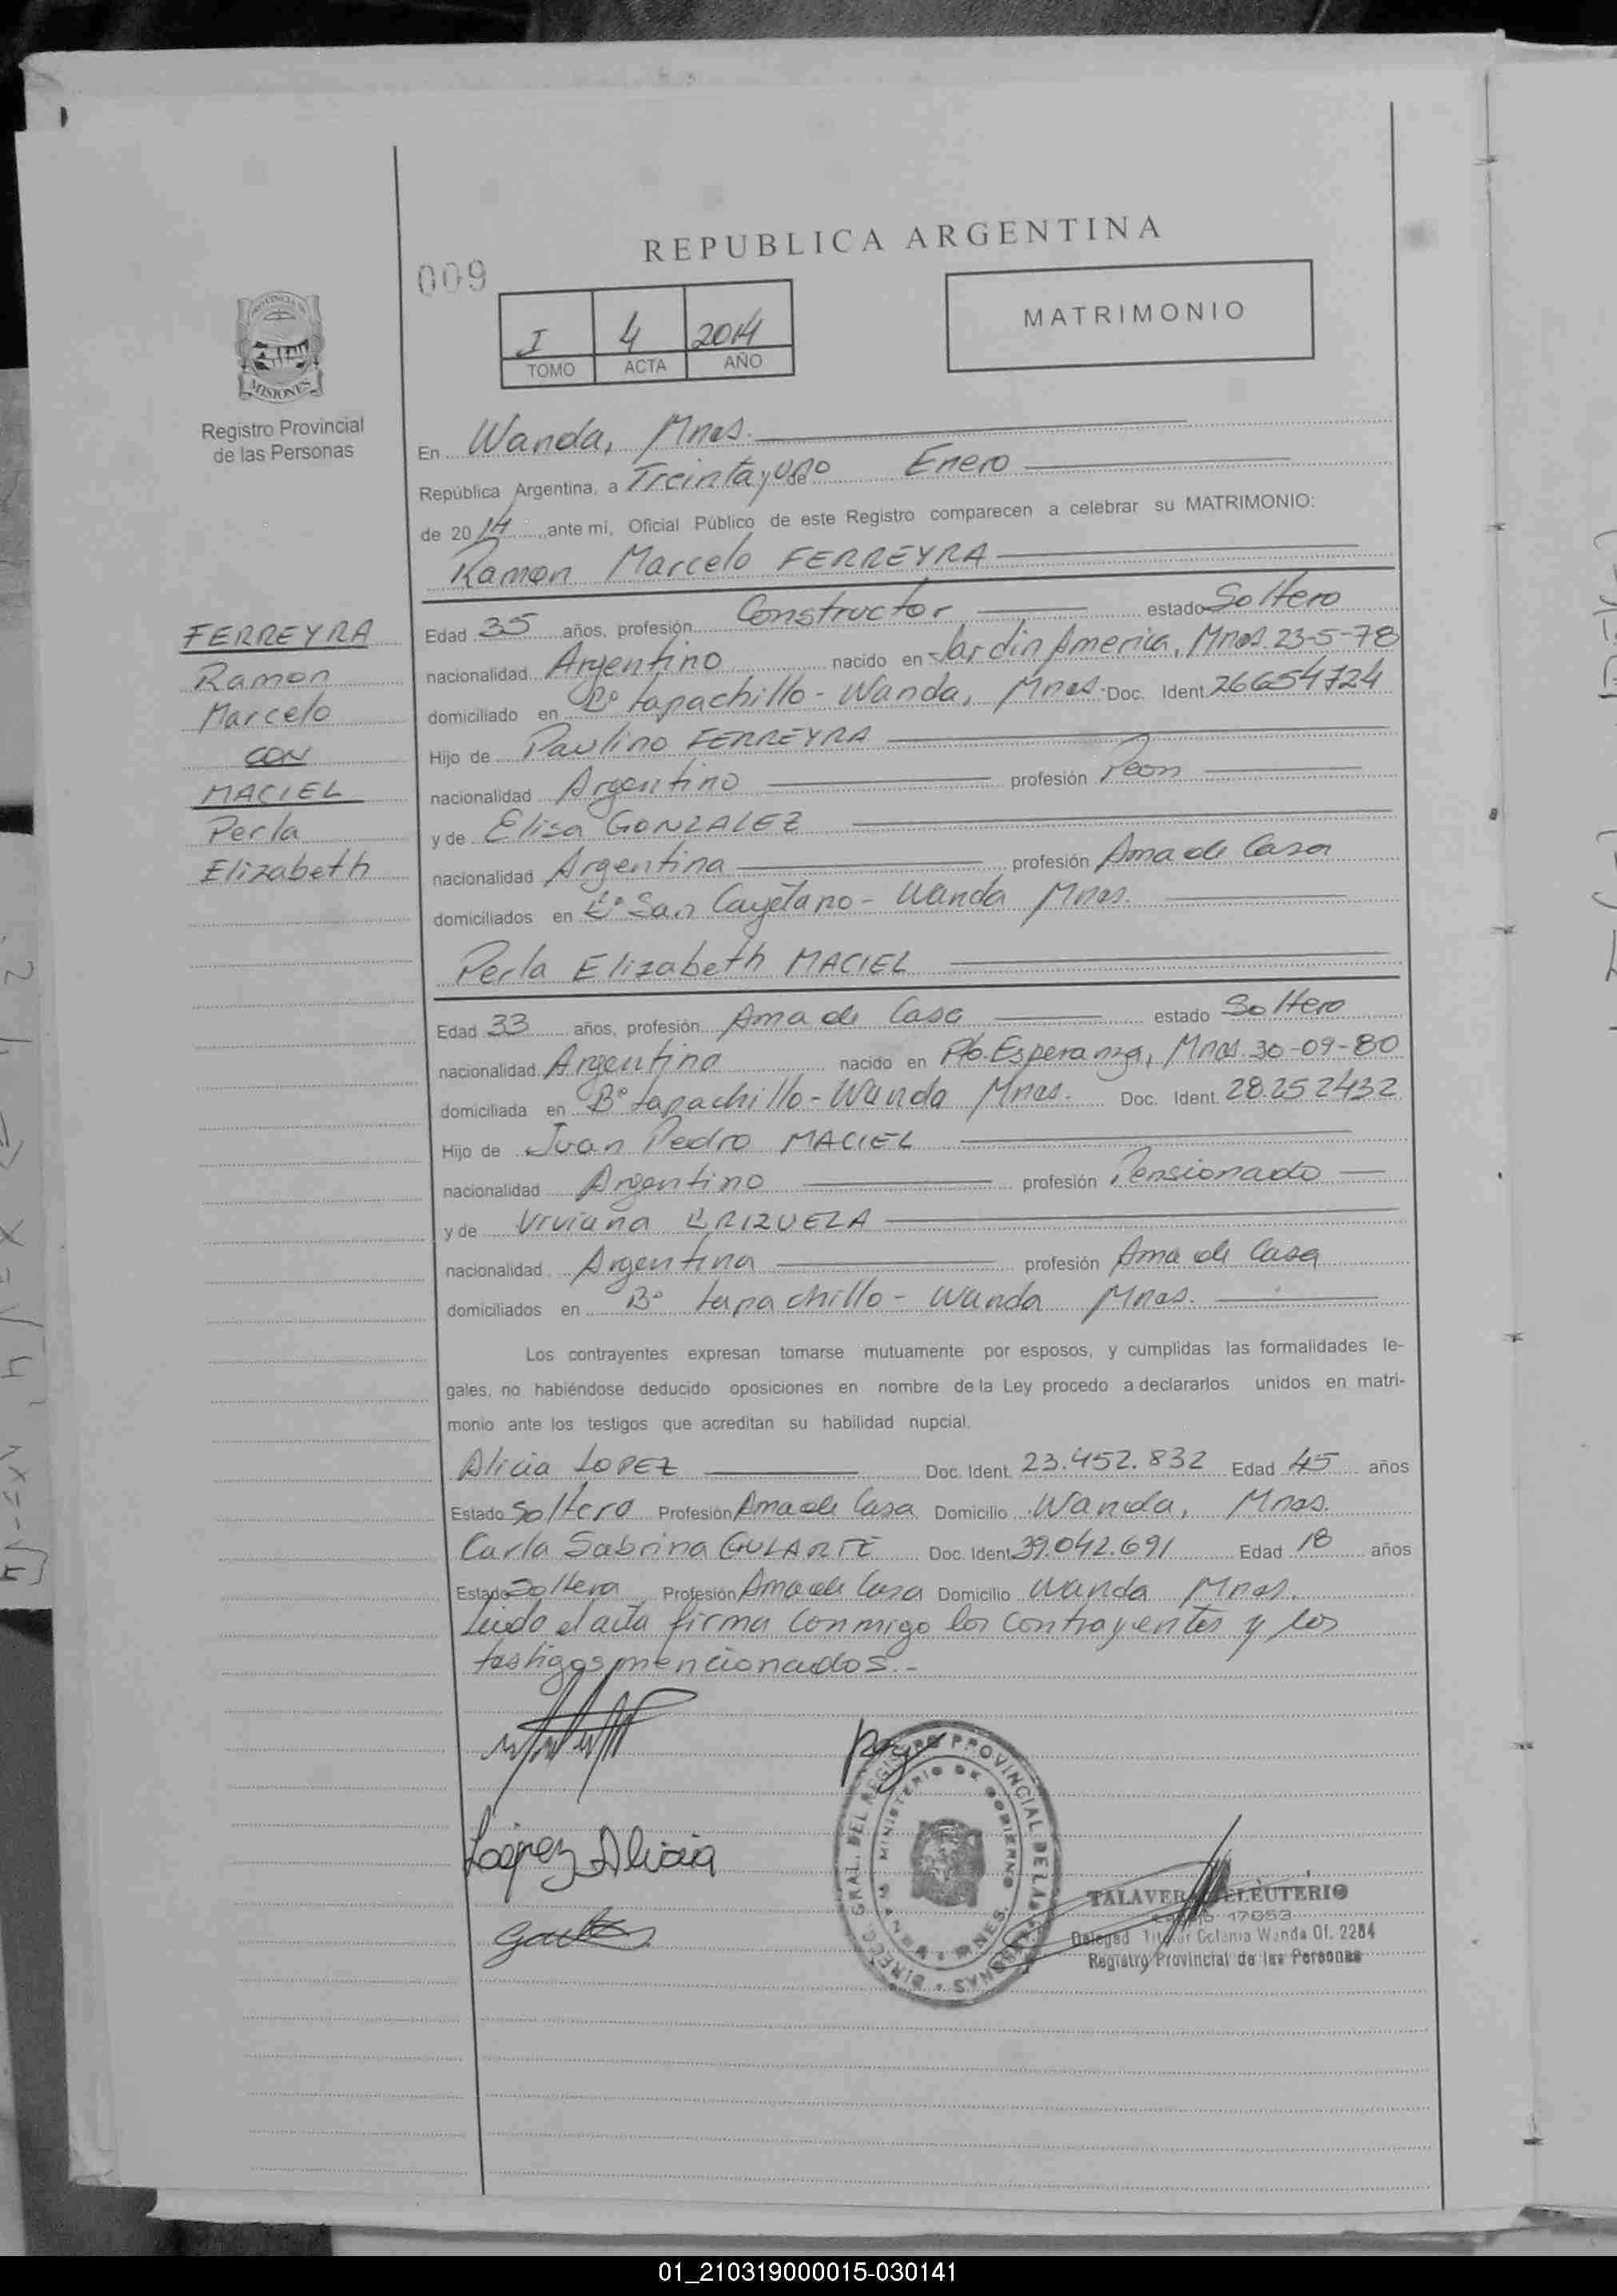 REPUBLICA ARGENTINA
009
MATRIMONIO
I 4 2014
TOMO ACTA AÑO
PROVINCIA DE
MISIONES
Registro Provincial
de las Personas
En Wanda, Mnes.
República Argentina, a Treinta y uno de Enero
de 2014, ante mi, Oficial Público de este Registro comparecen a celebrar su MATRIMONIO:
Ramon Marcelo FERREYRA
FERREYRA
Ramon
Marcelo
CON
MACIEL
Perla
Elizabeth
Edad 35 años, profesión Constructor estado Soltero
nacionalidad Argentino nacido en Jardin America, Mnes. 23-5-78
domiciliado en B° tapachillo - Wanda, Mnes. Doc. Ident. 26654724
Hijo de Paulino FERREYRA
nacionalidad Argentino profesión Peon
y de Elisa GONZALEZ
nacionalidad Argentina profesión Ama de Casa
domiciliados en B° San Cayetano - Wanda Mnes.
Perla Elizabeth MACIEL
Edad 33 años, profesión Ama de Casa estado Soltero
nacionalidad Argentina nacido en Pto. Esperanza, Mnes. 30-09-80
domiciliada en B° tapachillo - Wanda Mnes. Doc. Ident. 28.252432
Hijo de Juan Pedro MACIEL
nacionalidad Argentino profesión Pensionado
y de Viviana BRIZUELA
nacionalidad Argentina profesión Ama de Casa
domiciliados en B° tapachillo - Wanda Mnes.
Los contrayentes expresan tomarse mutuamente por esposos, y cumplidas las formalidades le-
gales, no habiéndose deducido oposiciones en nombre de la Ley procedo a declararlos unidos en matri-
monio ante los testigos que acreditan su habilidad nupcial.
Alicia LOPEZ Doc. Ident. 23.452.832 Edad 45 años
Estado Soltero Profesión Ama de Casa Domicilio Wanda, Mnes.
Carla Sabrina GULARTE Doc. Ident 39.042.691 Edad 18 años
Estado Soltera Profesión Ama de Casa Domicilio Wanda Mnes.
Leido el acta firma conmigo los contrayentes y los
testigos mencionados.-
Lopez Alicia
DIRECC. GRAL. DEL REGISTRO PROVINCIAL DE LAS PERSONAS
MINISTERIO DE GOBIERNO
WANDA MNES.
TALAVERA ELEUTERIO
Legajo 17053
Delegad Titular Colonia Wanda Of. 2284
Registro Provincial de las Personas
01_210319000015-030141